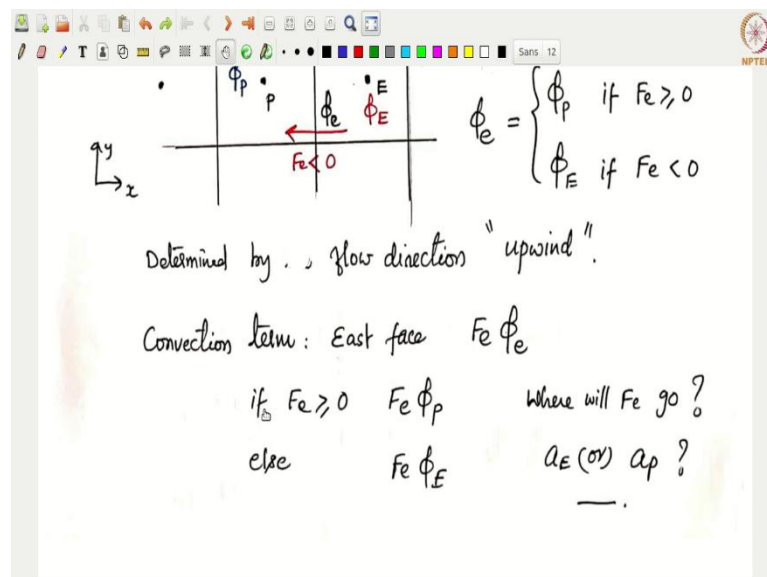 Sans 12
NPTEL
ϕP P ϕe E ϕE
Fe < 0
y
x
ϕe = { ϕP if Fe ≥ 0
ϕE if Fe < 0
Determined by . , flow direction "upwind".
Convection term: East face Fe ϕe
if Fe ≥ 0 Fe ϕP Where will Fe go?
else Fe ϕE aE (or) aP ?